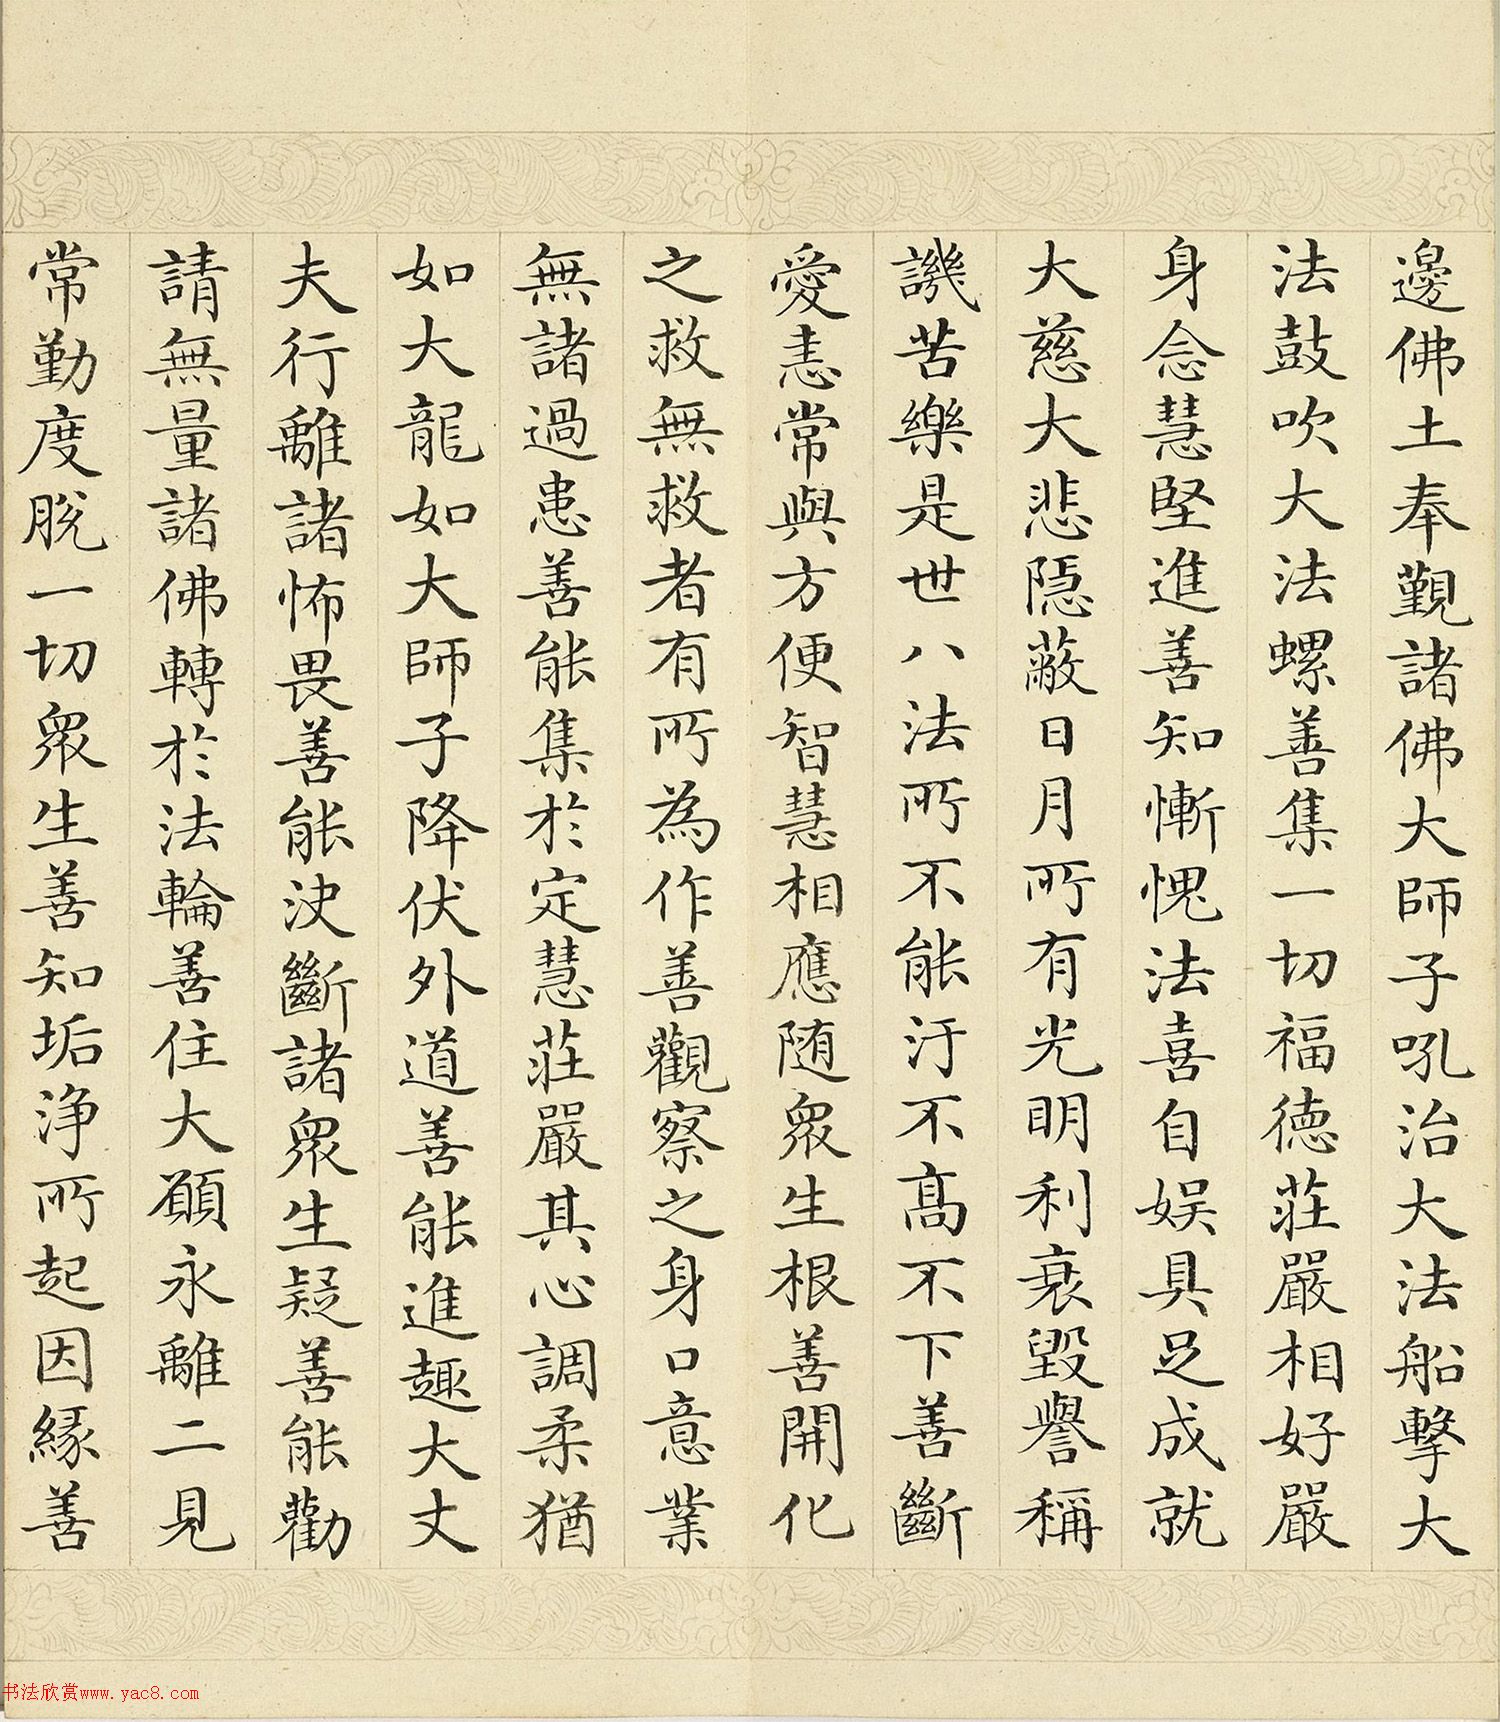 邊佛土奉覲諸佛大師子吼治大法船擊大
法鼓吹大法螺善集一切福德莊嚴相好嚴
身念慧堅進善知慚愧法喜自娛具足成就
大慈大悲隱蔽日月所有光明利衰毀譽稱
譏苦樂是世八法所不能汙不高不下善斷
愛恚常與方便智慧相應随眾生根善開化
之救無救者有所為作善觀察之身口意業
無諸過患善能集於定慧莊嚴其心調柔猶
如大龍如大師子降伏外道善能進趣大丈
夫行離諸怖畏善能決斷諸眾生疑善能勸
請無量諸佛轉於法輪善住大願永離二見
常勤度脫一切眾生善知垢淨所起因緣善
书法欣赏www.yac8.com